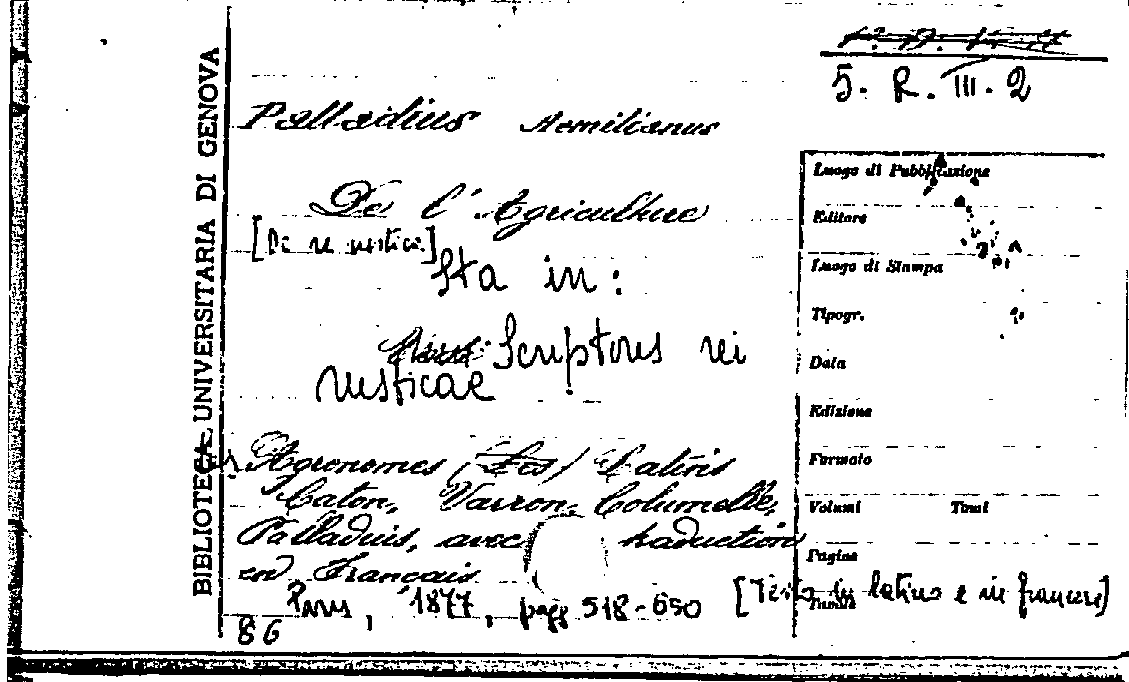 BIBLIOTECA UNIVERSITARIA DI GENOVA
5. R. III. 2
Palladius Aemilianus
De l'Agriculture
[De re rustica]
Sta in:
Scriptores rei
rusticae
Agronomes (Les) Latins
Caton, Varron, Columelle,
Palladuis, avec traduction
en Français
Paris, 1877, pagg 518-650 [Testo in latino e in francese]
86
Luogo di Pubblicazione
Editore
Luogo di Stampa
Tipogr.
Data
Edizione
Formato
Volumi Tomi
Pagine
Tavole